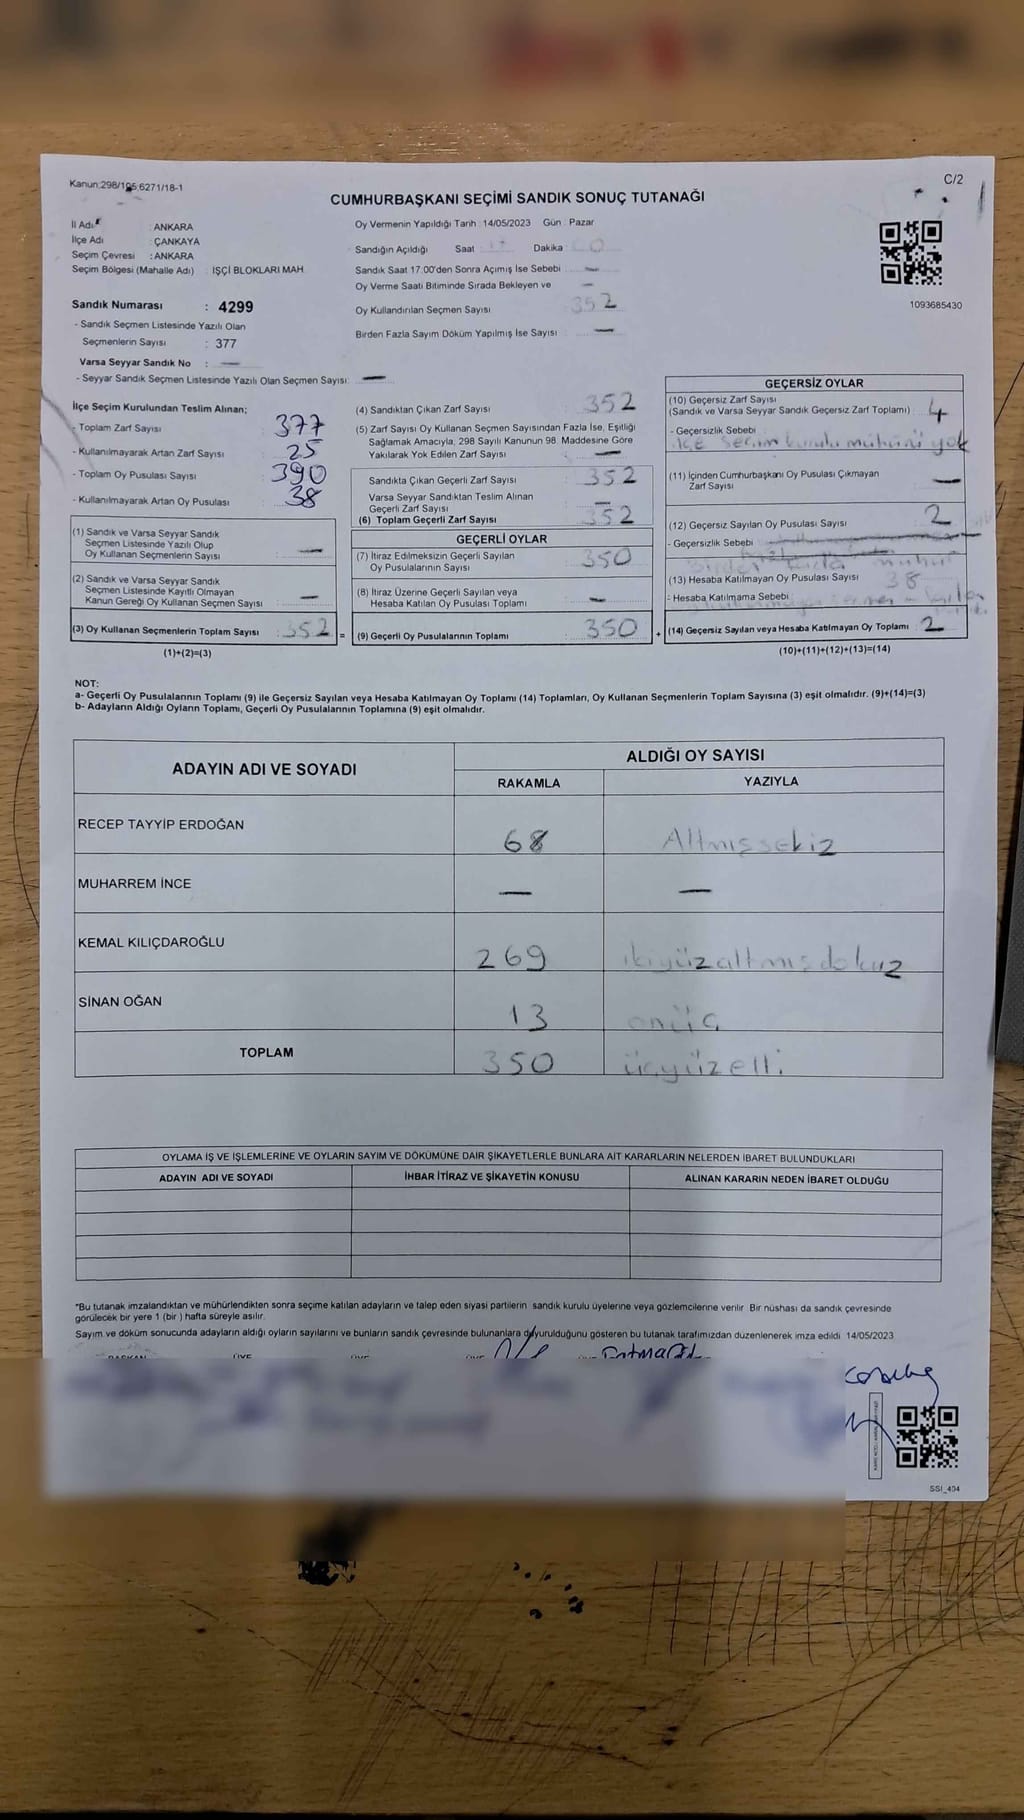 Kanun:298/105;6271/18-1
C/2
CUMHURBAŞKANI SEÇİMİ SANDIK SONUÇ TUTANAĞI
İl Adı : ANKARA
İlçe Adı : ÇANKAYA
Seçim Çevresi : ANKARA
Seçim Bölgesi (Mahalle Adı) : İŞÇİ BLOKLARI MAH.
Sandık Numarası : 4299
- Sandık Seçmen Listesinde Yazılı Olan
Seçmenlerin Sayısı : 377
Varsa Seyyar Sandık No : —
- Seyyar Sandık Seçmen Listesinde Yazılı Olan Seçmen Sayısı: —
Oy Vermenin Yapıldığı Tarih :14/05/2023 Gün : Pazar
Sandığın Açıldığı Saat 17 Dakika 00
Sandık Saat 17.00'den Sonra Açımış İse Sebebi —
Oy Verme Saati Bitiminde Sırada Bekleyen ve —
Oy Kullandırılan Seçmen Sayısı 352
Birden Fazla Sayım Döküm Yapılmış İse Sayısı —
1093685430
İlçe Seçim Kurulundan Teslim Alınan;
- Toplam Zarf Sayısı 377
- Kullanılmayarak Artan Zarf Sayısı 25
- Toplam Oy Pusulası Sayısı 390
- Kullanılmayarak Artan Oy Pusulası 38
(1) Sandık ve Varsa Seyyar Sandık
Seçmen Listesinde Yazılı Olup
Oy Kullanan Seçmenlerin Sayısı —
(2) Sandık ve Varsa Seyyar Sandık
Seçmen Listesinde Kayıtlı Olmayan
Kanun Gereği Oy Kullanan Seçmen Sayısı —
(3) Oy Kullanan Seçmenlerin Toplam Sayısı 352 =
(1)+(2)=(3)
(4) Sandıktan Çıkan Zarf Sayısı 352
(5) Zarf Sayısı Oy Kullanan Seçmen Sayısından Fazla İse, Eşitliği
Sağlamak Amacıyla, 298 Sayılı Kanunun 98. Maddesine Göre
Yakılarak Yok Edilen Zarf Sayısı —
Sandıkta Çıkan Geçerli Zarf Sayısı 352
Varsa Seyyar Sandıktan Teslim Alınan
Geçerli Zarf Sayısı —
(6) Toplam Geçerli Zarf Sayısı 352
GEÇERLİ OYLAR
(7) İtiraz Edilmeksizin Geçerli Sayılan
Oy Pusulalarının Sayısı 350
(8) İtiraz Üzerine Geçerli Sayılan veya
Hesaba Katılan Oy Pusulası Toplamı —
(9) Geçerli Oy Pusulalarının Toplamı 350 +
GEÇERSİZ OYLAR
(10) Geçersiz Zarf Sayısı
(Sandık ve Varsa Seyyar Sandık Geçersiz Zarf Toplamı) 4
- Geçersizlik Sebebi
ilçe seçim kurulu mühürü yok
(11) İçinden Cumhurbaşkanı Oy Pusulası Çıkmayan
Zarf Sayısı —
(12) Geçersiz Sayılan Oy Pusulası Sayısı 2
- Geçersizlik Sebebi
Birden fazla mühür
(13) Hesaba Katılmayan Oy Pusulası Sayısı 38
- Hesaba Katılmama Sebebi
(14) Geçersiz Sayılan veya Hesaba Katılmayan Oy Toplamı 2
(10)+(11)+(12)+(13)=(14)
NOT:
a- Geçerli Oy Pusulalarının Toplamı (9) ile Geçersiz Sayılan veya Hesaba Katılmayan Oy Toplamı (14) Toplamları, Oy Kullanan Seçmenlerin Toplam Sayısına (3) eşit olmalıdır. (9)+(14)=(3)
b- Adayların Aldığı Oyların Toplamı, Geçerli Oy Pusulalarının Toplamına (9) eşit olmalıdır.
ADAYIN ADI VE SOYADI ALDIĞI OY SAYISI
RAKAMLA YAZIYLA
RECEP TAYYİP ERDOĞAN 68 Altmışsekiz
MUHARREM İNCE — —
KEMAL KILIÇDAROĞLU 269 ikiyüzaltmışdokuz
SİNAN OĞAN 13 onüç
TOPLAM 350 üçyüzelli
OYLAMA İŞ VE İŞLEMLERİNE VE OYLARIN SAYIM VE DÖKÜMÜNE DAİR ŞİKAYETLERLE BUNLARA AİT KARARLARIN NELERDEN İBARET BULUNDUKLARI
ADAYIN ADI VE SOYADI İHBAR İTİRAZ VE ŞİKAYETİN KONUSU ALINAN KARARIN NEDEN İBARET OLDUĞU
*Bu tutanak imzalandıktan ve mühürlendikten sonra seçime katılan adayların ve talep eden siyasi partilerin sandık kurulu üyelerine veya gözlemcilerine verilir. Bir nüshası da sandık çevresinde
görülecek bir yere 1 (bir) hafta süreyle asılır.
Sayım ve döküm sonucunda adayların aldığı oyların sayılarını ve bunların sandık çevresinde bulunanlara duyurulduğunu gösteren bu tutanak tarafımızdan düzenlenerek imza edildi. 14/05/2023
BAŞKAN ÜYE ÜYE ÜYE ÜYE
SSI_404